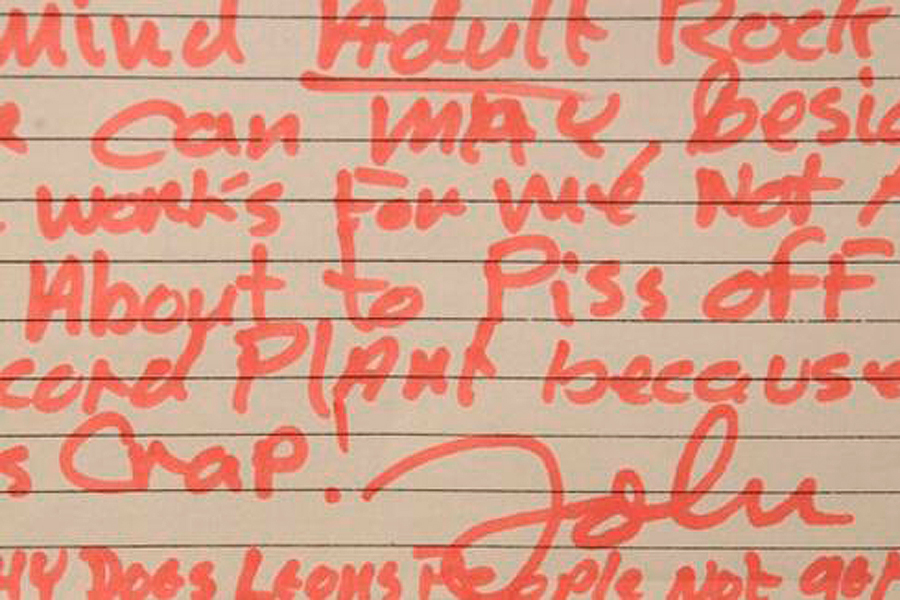 mind Adult Rock
Can MAY besi
work's For me Not A
About to Piss off
cord PlAnt because
s Crap! John
HY Does Leons People Not get